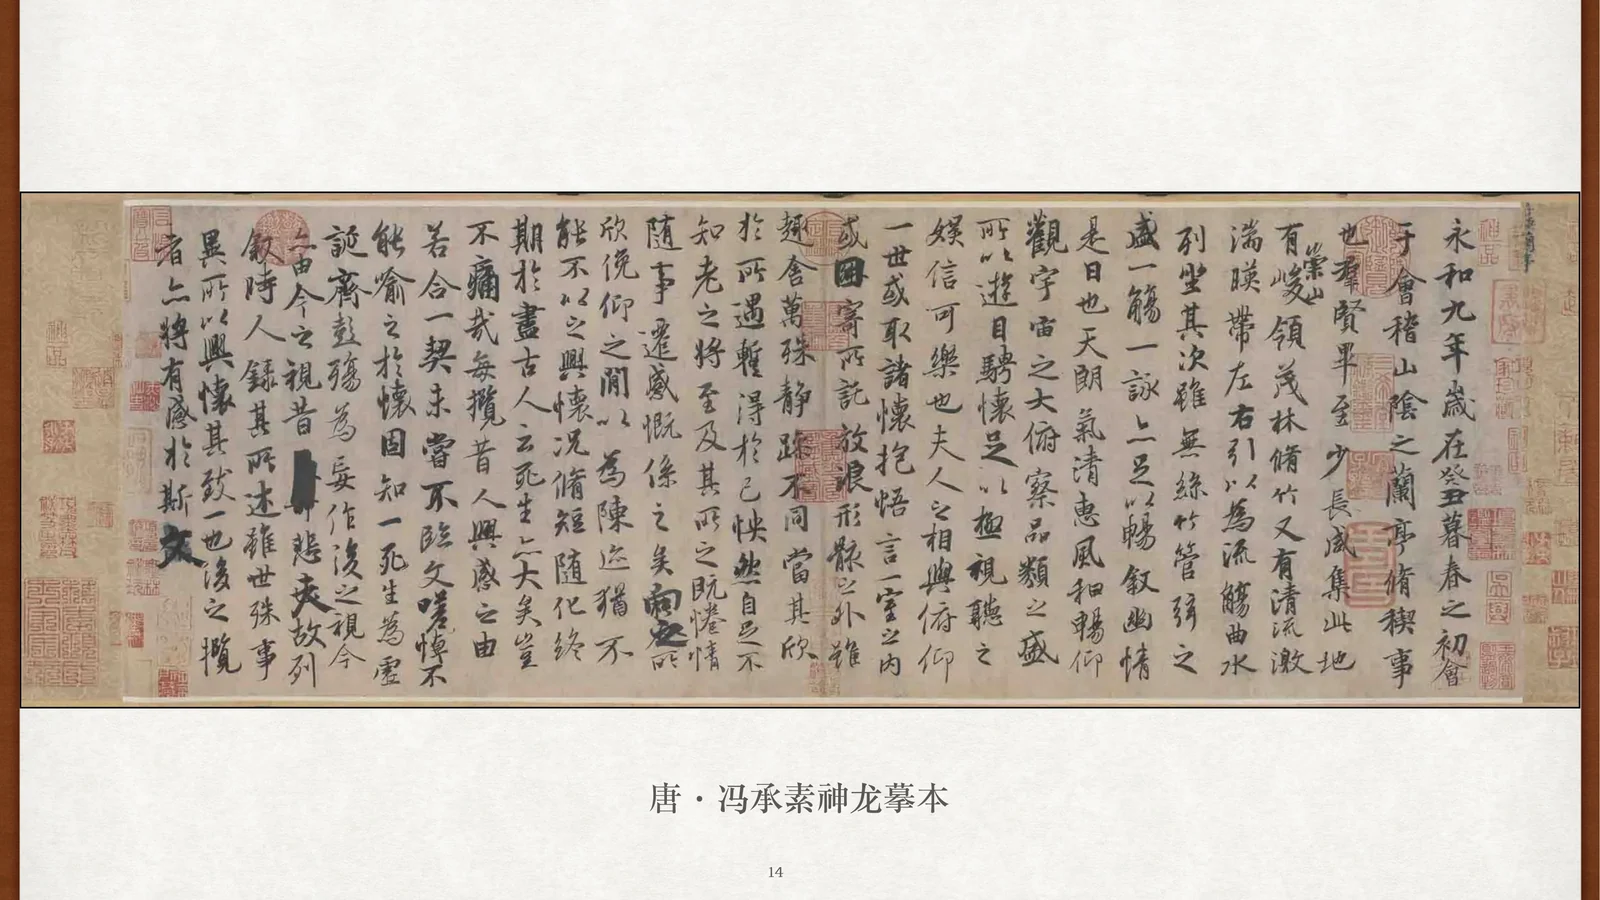 永和九年歲在癸丑暮春之初會
于會稽山陰之蘭亭脩稧事
也羣賢畢至少長咸集此地
有崇山峻領茂林脩竹又有清流激
湍暎帶左右引以為流觴曲水
列坐其次雖無絲竹管弦之
盛一觴一詠亦足以暢叙幽情
是日也天朗氣清惠風和暢仰
觀宇宙之大俯察品類之盛
所以遊目騁懷足以極視聽之
娛信可樂也夫人之相與俯仰
一世或取諸懷抱悟言一室之內
或因寄所託放浪形骸之外雖
趣舍萬殊靜躁不同當其欣
於所遇蹔得於己怏然自足不
知老之將至及其所之既惓情
隨事遷感慨係之矣向之所
欣俛仰之閒以為陳迹猶不
能不以之興懷況脩短隨化終
期於盡古人云死生亦大矣豈
不痛哉每攬昔人興感之由
若合一契未嘗不臨文嗟悼不
能喻之於懷固知一死生為虛
誕齊彭殤為妄作後之視今
亦由今之視昔悲夫故列
叙時人錄其所述雖世殊事
異所以興懷其致一也後之攬
者亦將有感於斯文
唐·冯承素神龙摹本
14